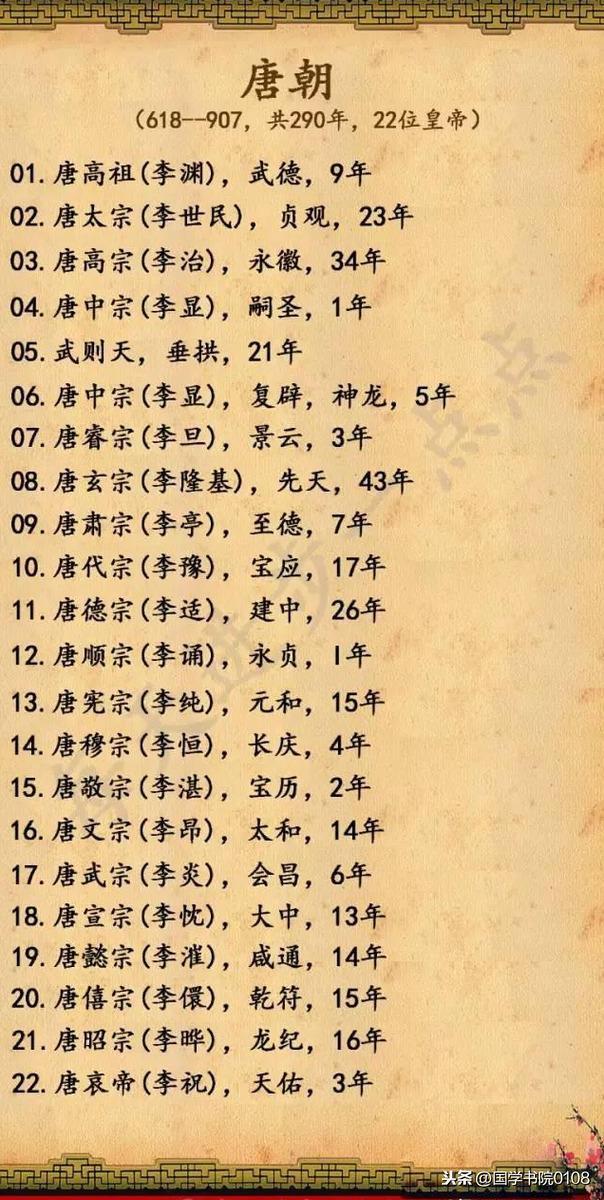 唐朝
(618--907, 共290年, 22位皇帝)
01.唐高祖(李渊), 武德, 9年
02.唐太宗(李世民), 贞观, 23年
03.唐高宗(李治), 永徽, 34年
04.唐中宗(李显), 嗣圣, 1年
05.武则天, 垂拱, 21年
06.唐中宗(李显), 复辟, 神龙, 5年
07.唐睿宗(李旦), 景云, 3年
08.唐玄宗(李隆基), 先天, 43年
09.唐肃宗(李亭), 至德, 7年
10.唐代宗(李豫), 宝应, 17年
11.唐德宗(李适), 建中, 26年
12.唐顺宗(李诵), 永贞, 1年
13.唐宪宗(李纯), 元和, 15年
14.唐穆宗(李恒), 长庆, 4年
15.唐敬宗(李湛), 宝历, 2年
16.唐文宗(李昂), 太和, 14年
17.唐武宗(李炎), 会昌, 6年
18.唐宣宗(李忱), 大中, 13年
19.唐懿宗(李漼), 咸通, 14年
20.唐僖宗(李儇), 乾符, 15年
21.唐昭宗(李晔), 龙纪, 16年
22.唐哀帝(李祝), 天佑, 3年
头条 @国学书院0108